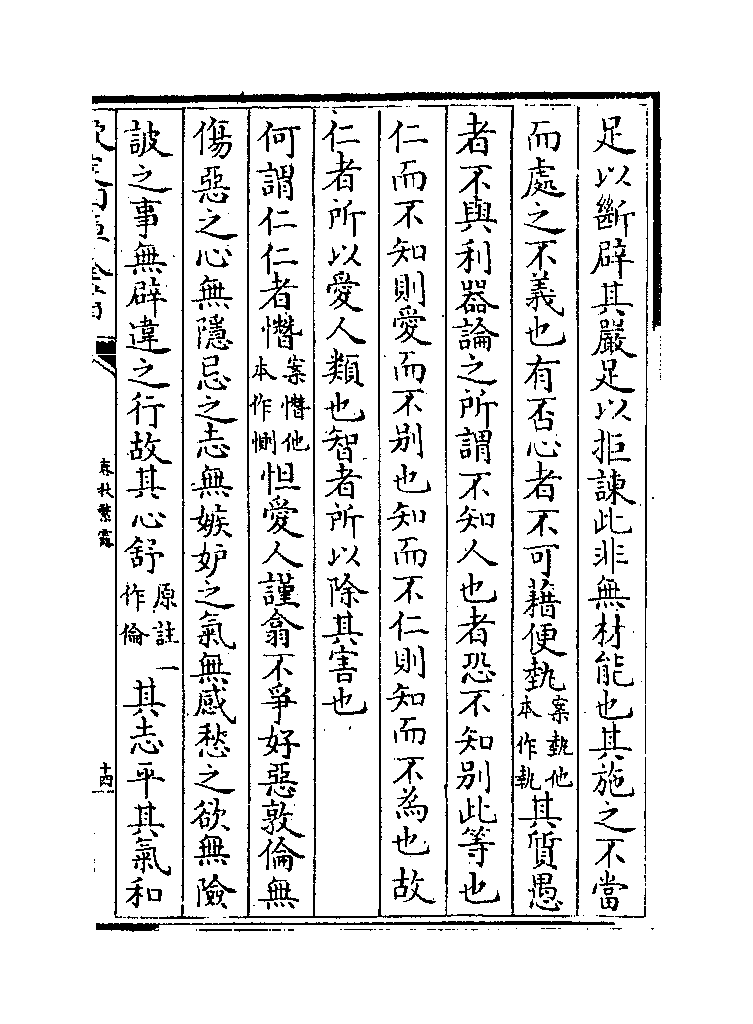 足以斷辟其嚴足以拒諫此非無材能也其施之不當
而處之不義也有否心者不可藉便埶案埶他本作執其質愚
者不與利器論之所謂不知人也者恐不知別此等也
仁而不知則愛而不別也知而不仁則知而不為也故
仁者所以愛人類也智者所以除其害也
何謂仁仁者憯案憯他本作惻怛愛人謹翕不爭好惡敦倫無
傷惡之心無隱忌之志無嫉妒之氣無感愁之欲無險
詖之事無辟違之行故其心舒原註一作倫其志平其氣和
春秋繁露
十四